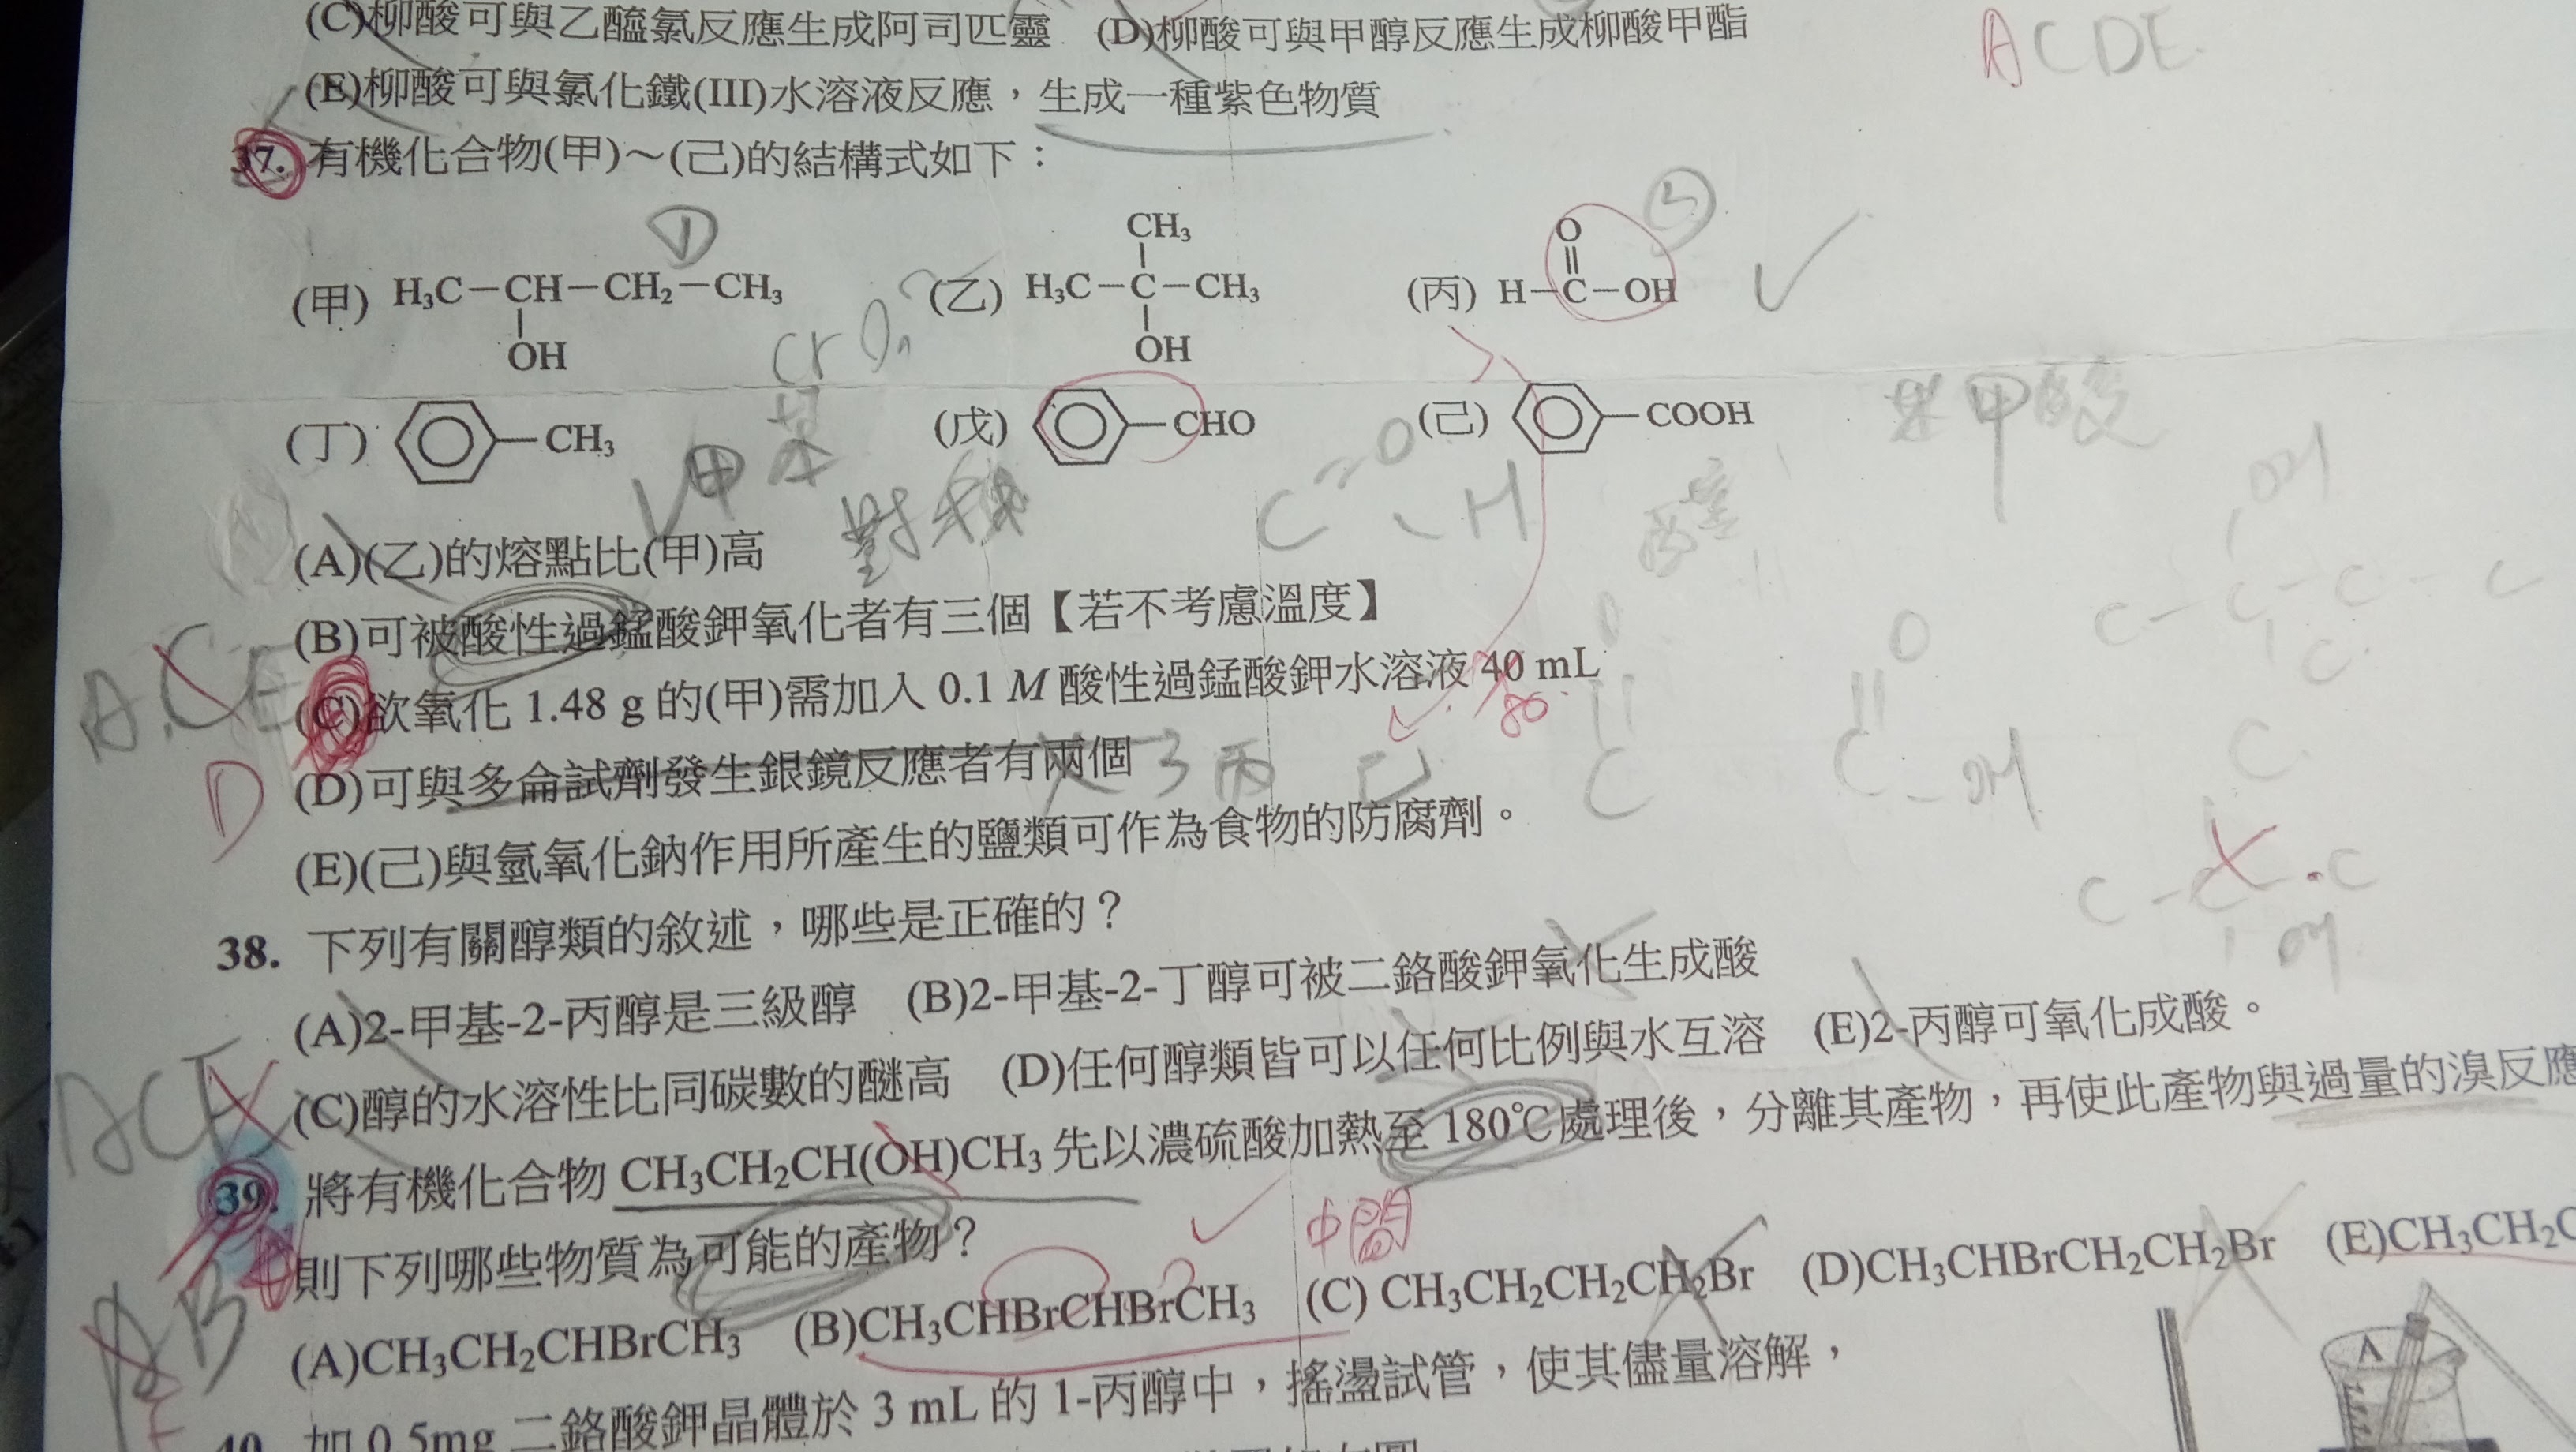 (C)柳酸可與乙醯氯反應生成阿司匹靈 (D)柳酸可與甲醇反應生成柳酸甲酯
ACDE
(E)柳酸可與氯化鐵(III)水溶液反應，生成一種紫色物質
37. 有機化合物(甲)～(己)的結構式如下：
(甲) H₃C－CH－CH₂－CH₃
OH
(乙) H₃C－C－CH₃
CH₃
OH
(丙) H－C－OH
O
(丁) CH₃
甲苯
(戊) CHO
(己) COOH
苯甲酸
(A)(乙)的熔點比(甲)高 對稱
C=O
H
醛
(B)可被酸性過錳酸鉀氧化者有三個【若不考慮溫度】
(C)欲氧化 1.48 g 的(甲)需加入 0.1 M 酸性過錳酸鉀水溶液 40 mL
80
ACE
D
(D)可與多侖試劑發生銀鏡反應者有兩個
丙
(E)(己)與氫氧化鈉作用所產生的鹽類可作為食物的防腐劑。
38. 下列有關醇類的敘述，哪些是正確的？
(A)2-甲基-2-丙醇是三級醇 (B)2-甲基-2-丁醇可被二鉻酸鉀氧化生成酸
(C)醇的水溶性比同碳數的醚高 (D)任何醇類皆可以任何比例與水互溶 (E)2-丙醇可氧化成酸。
ACE
39. 將有機化合物 CH₃CH₂CH(OH)CH₃ 先以濃硫酸加熱至 180℃處理後，分離其產物，再使此產物與過量的溴反應
則下列哪些物質為可能的產物？
中間
(A)CH₃CH₂CHBrCH₃ (B)CH₃CHBrCHBrCH₃ (C) CH₃CH₂CH₂CH₂Br (D)CH₃CHBrCH₂CH₂Br (E)CH₃CH₂C
B
E
A
40. 加 0.5mg 二鉻酸鉀晶體於 3 mL 的 1-丙醇中，搖盪試管，使其儘量溶解，